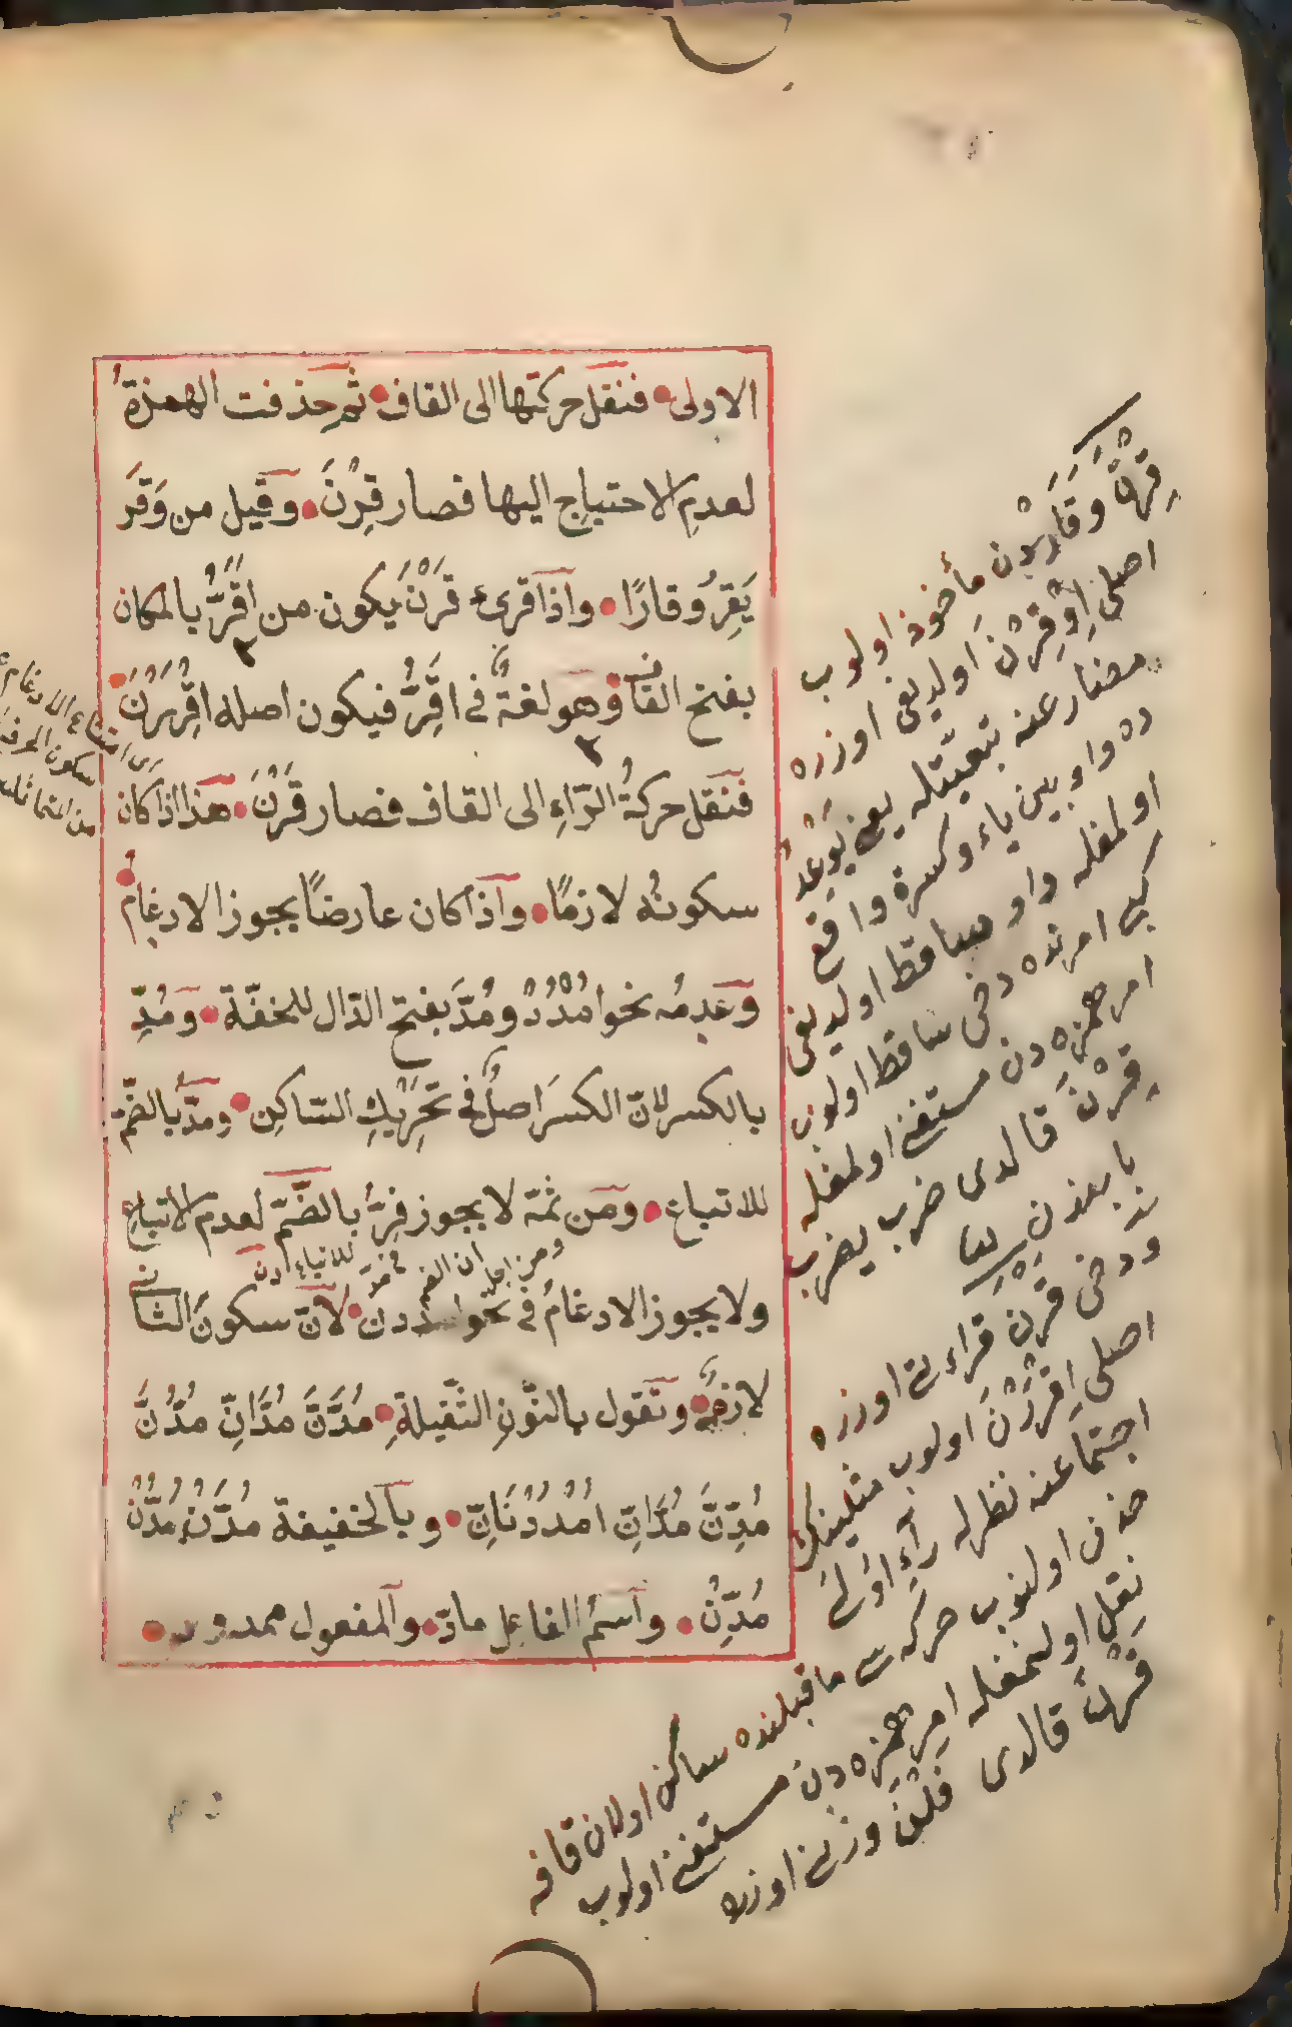 الاولى فنقل حركتها الى القاف ثم حذفت الهمزة
لعدم الاحتياج اليها فصار قِرْنَ وقيل من وَقَرَ
يَقِرُ وقارًا واذا قرئ قَرْنَ يكون من اَقَرُّ بالمكان
بفتح القاف وهو لغةٌ فى اقِرُّ فيكون اصله اقْرَرْنَ
فنقل حركةُ الرّاءِ الى القاف فصار قَرْنَ هذا اذا كان
سكونُه لازمًا واذا كان عارضًا يجوز الادغامُ
وعدمُه نحو امْدُدْ ومُدَّ بفتح الدّال للخفّة ومُدِّ
بالكسر لانّ الكسرَ اصلٌ فى تَحْرِيْكِ السّاكِن ومدُّ بالضّمّ
للاتباع ومن ثمّة لا يجوز فِرُّ بالضّمّ لعدم الاتباع
ولا يجوز الادغامُ فى نحو امددن لانّ سكونَ الثّانى
لازمٌ وتقول بالنّونِ الثّقيلةِ مُدَّنَّ مُدَّانِّ مُدُّنَّ
مُدِّنَّ مُدَّانِّ اُمْدُدْنَانِّ وبالخفيفة مُدَّنْ مُدُّنْ
مُدِّنْ واسمُ الفاعِل مادّ والمفعول ممدود
قِرْنَ وَقَارْدن مأخوذ اولوب
اصلى اِوْقِرْنَ اولديغى اوزره
مضارعنه تبعيّتله يعنى يَوْعِدُ
ده واو بين ياء وكسرة واقع
اولمغله واو ساقط اولديغى
كبى امرنده دخى ساقط اولوب
امر همزه دن مستغنى اولمغله
قِرْنَ قالدى ضرب يضرب
بابندن
ودخى قَرْن قراءتى اوزره
اصلى اِقْرَرْنَ اولوب مثلينك
اجتماعنه نظرله راءِ اولى
حذف اولنوب حركه سى ماقبلنده ساكن اولان قافه
نقل اولنمغله امر همزه دن مستغنى اولوب
قَرْنَ قالدى فَلْنَ وزنى اوزره
اى امتناع الادغام
سكون الحرف
من المتماثلين